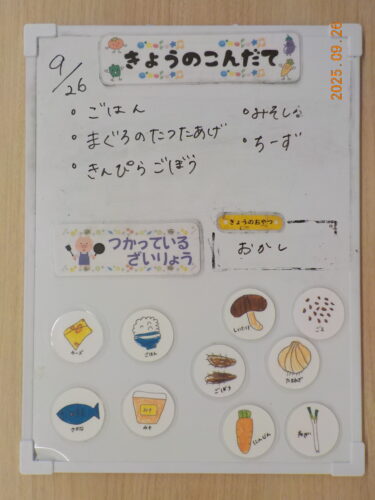 2025.09.26
きょうのこんだて
9/26
・ごはん
・みそしる
・まぐろのたつたあげ
・ちーず
・きんぴらごぼう
きょうのおやつ
おかし
つかっている
ざいりょう
チーズ
ごはん
しいたけ
ごま
ごぼう
たまねぎ
さかな
みそ
みそ
にんじん
ねぎ